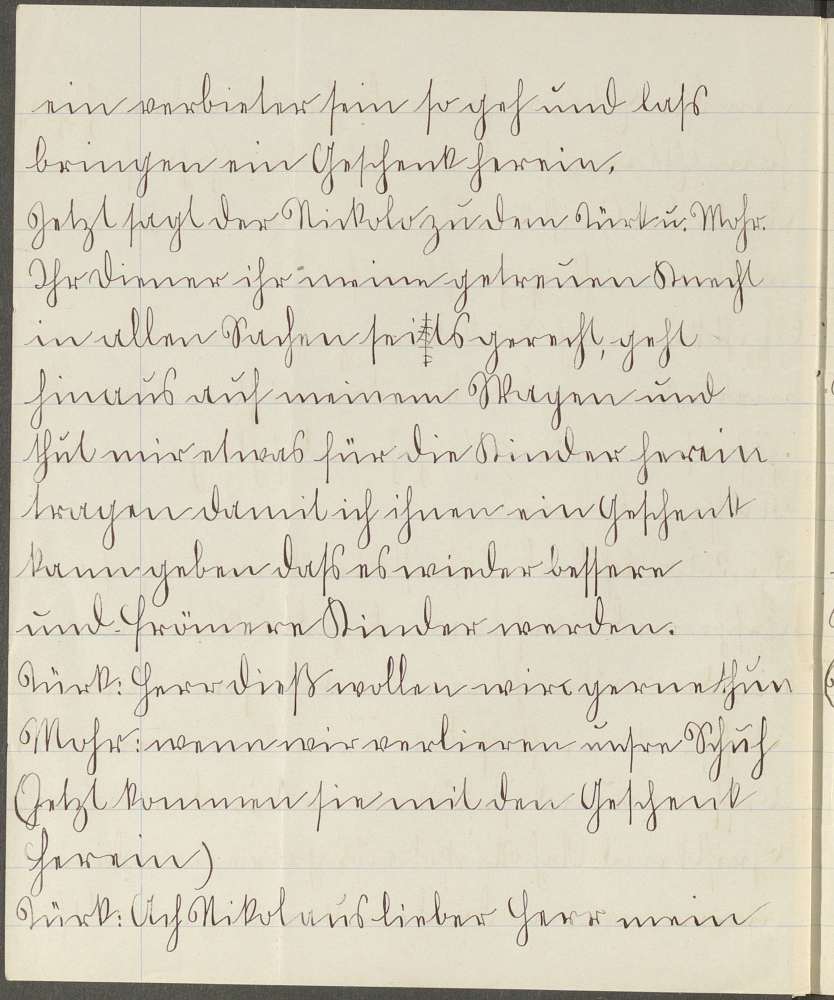 ein verbieter sein so geh und lass
bringen ein Geschenk herein.
Jetzt sagt der Nickolo zu dem Türk u. Mohr.
Ihr Diener ihr meine getreuen Knecht
in allen Sachen seits gerecht, geht
hinaus auf meinem Wagen und
thut mir etwas für die Kinder herein
tragen damit ich ihnen ein Geschenk
kann geben dass es wieder bessere
und frömere Kinder werden.
Türk: Herr dieß wollen wir gerne thun
Mohr: wenn wir verlieren unsre Schuh
(Jetzt kommen sie mit den Geschenk
herein)
Türk: Ach Nikolaus lieber Herr mein